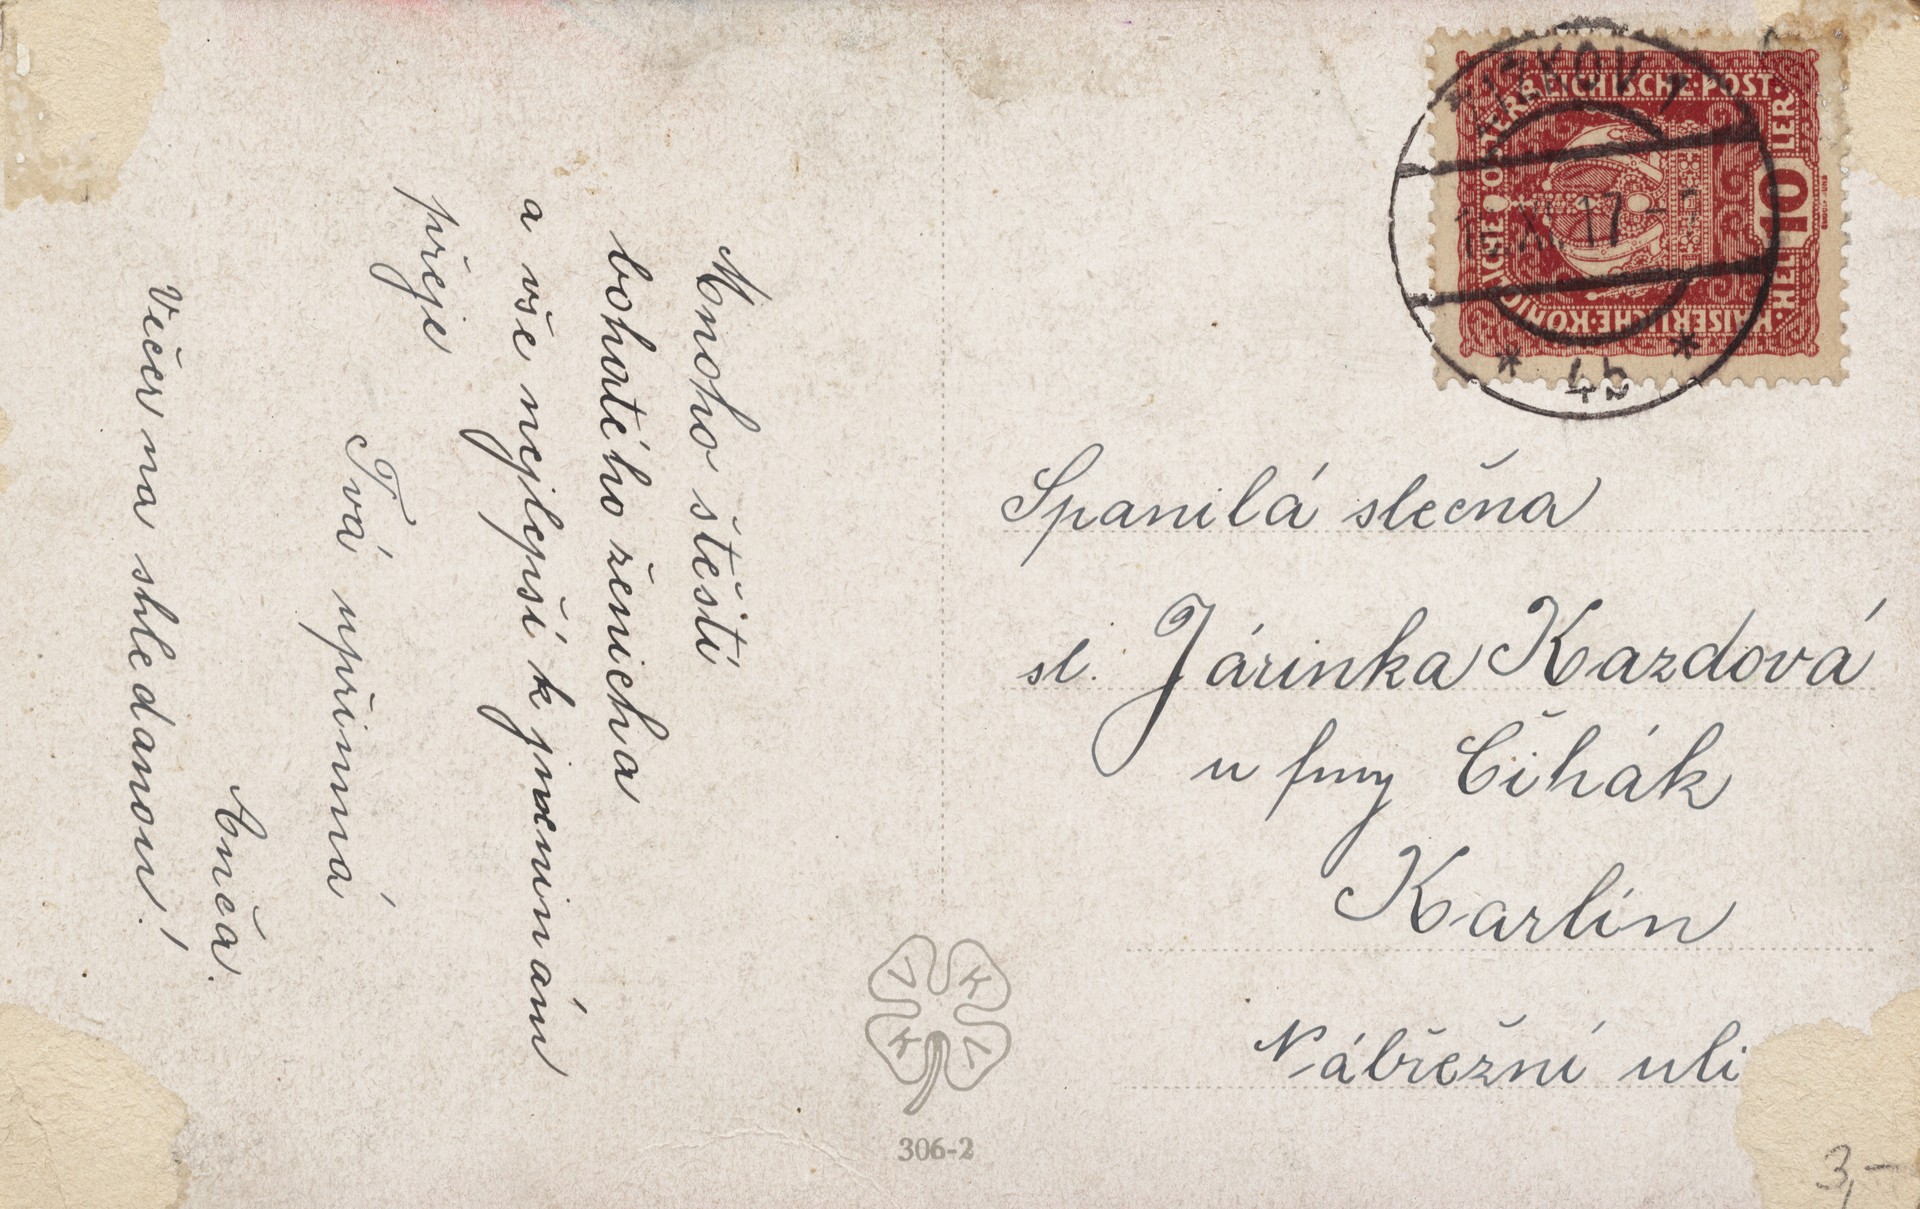 Mnoho štěstí
bohatého ženicha
a vše nejlepší k jmeninám
přeje
Tvá upřimná
Anča.
Večer na shledanou!
Spanilá slečna
sl. Járinka Kazdová
u fmy Čihák
Karlín
Nábřežní uli
ŽIŽKOV 1
XII 17
* 4b *
KAISERLICHE·KÖNIGLICHE ÖSTERREICHISCHE·POST·
HELLER
10
K
306-2
3,-